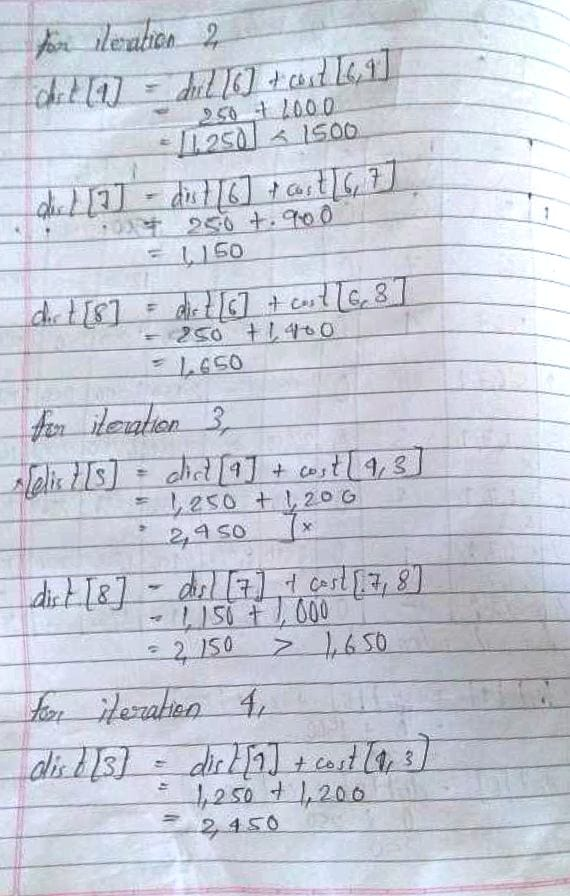 for iteration 2,
dist[4] = dist[6] + cost[6,4]
= 250 + 1000
= 1,250 < 1500
dist[7] = dist[6] + cost[6,7]
= 250 + 900
= 1,150
dist[8] = dist[6] + cost[6,8]
= 250 + 1,400
= 1,650
for iteration 3,
*[dist[3] = dist[4] + cost[4,3]
= 1,250 + 1,200
= 2,450 ]*
dist[8] = dist[7] + cost[7,8]
= 1,150 + 1,000
= 2,150 > 1,650
for iteration 4,
dist[3] = dist[4] + cost[4,3]
= 1,250 + 1,200
= 2,450